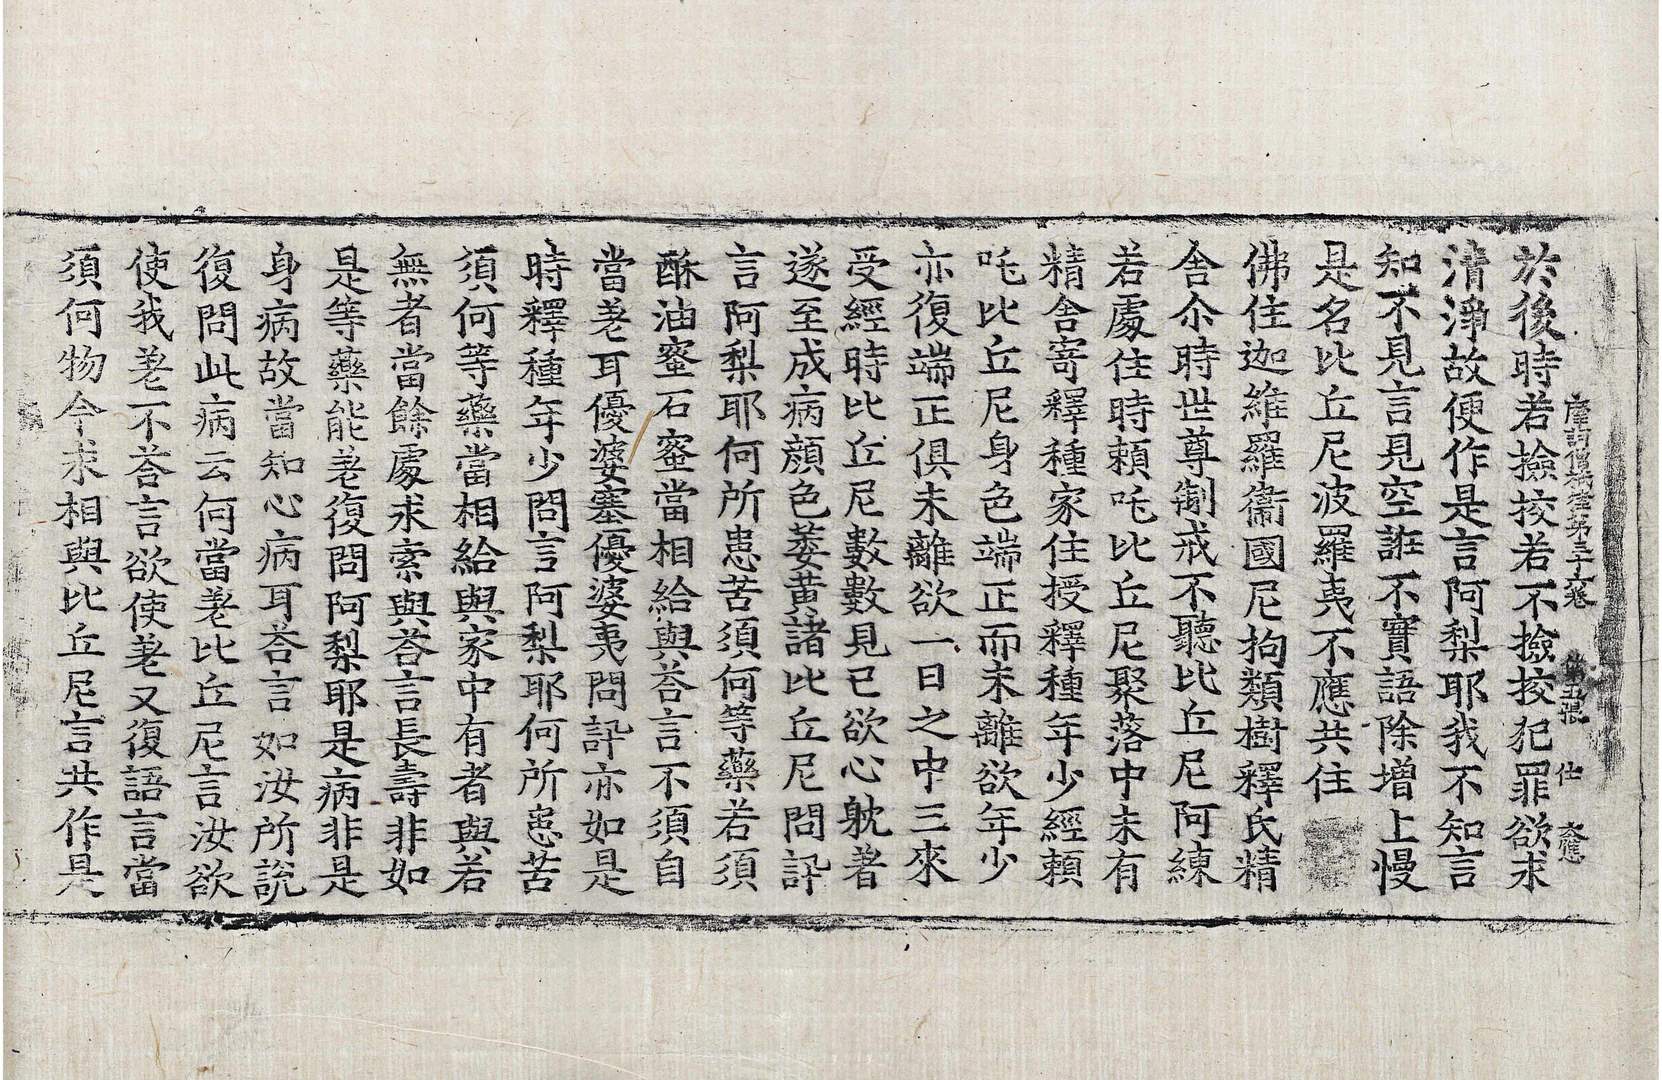 摩訶僧祇律第三十六卷 第五張 仕 大應
於後時若撿挍若不撿挍犯罪欲求
清淨故便作是言阿梨耶我不知言
知不見言見空誑不實語除增上慢
是名比丘尼波羅夷不應共住
佛住迦維羅衛國尼拘類樹釋氏精
舍尒時世尊制戒不聽比丘尼阿練
若處住時賴吒比丘尼聚落中未有
精舍寄釋種家住授釋種年少經賴
吒比丘尼身色端正而未離欲年少
亦復端正俱未離欲一日之中三來
受經時比丘尼數數見已欲心躭著
遂至成病顏色萎黃諸比丘尼問訊
言阿梨耶何所患苦須何等藥若須
酥油蜜石蜜當相給與荅言不須自
當差耳優婆塞優婆夷問訊亦如是
時釋種年少問言阿梨耶何所患苦
須何等藥當相給與家中有者與若
無者當餘處求索與荅言長壽非如
是等藥能差復問阿梨耶是病非是
身病故當知心病耳荅言如汝所說
復問此病云何當差比丘尼言汝欲
使我差不荅言欲使差又復語言當
須何物今求相與比丘尼言共作是